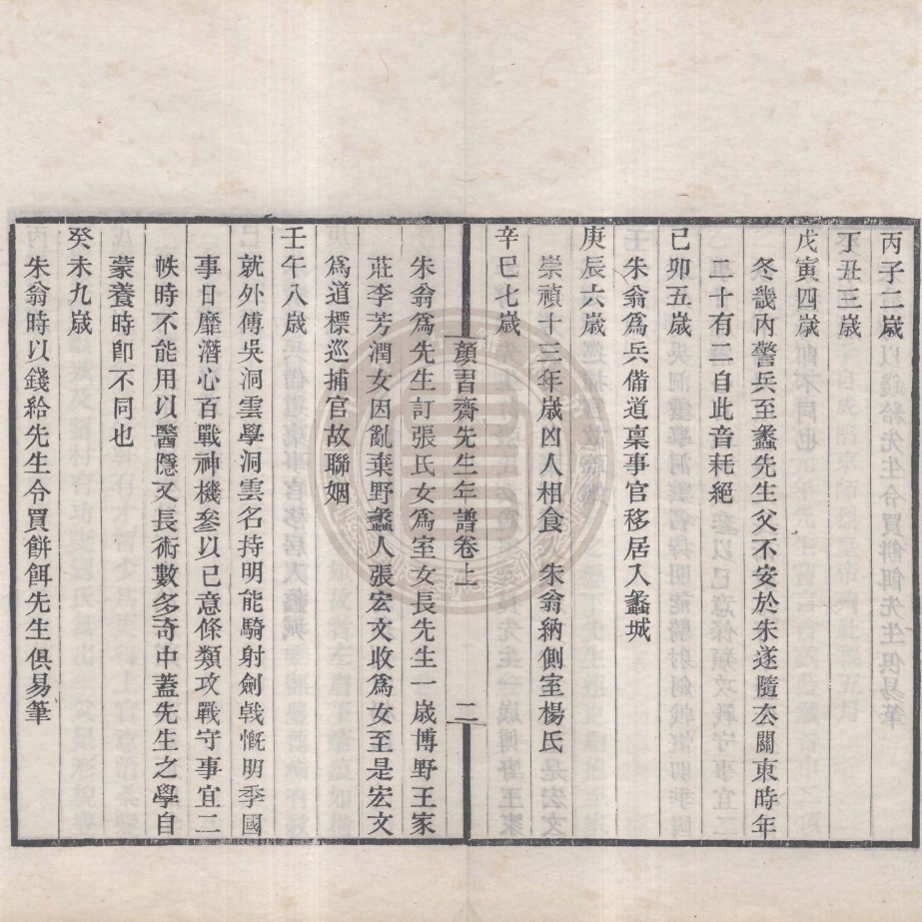 丙子二歲
丁丑三歲
戊寅四歲
冬畿內警兵至蠡先生父不安於朱遂隨厺關東時年
二十有二自此音耗絕
己卯五歲
朱翁爲兵備道稟事官移居入蠡城
庚辰六歲
崇禎十三年歲凶人相食朱翁納側室楊氏
辛巳七歲
顏習齋先生年譜卷上 二
朱翁爲先生訂張氏女爲室女長先生一歲博野王家
莊李芳潤女因亂棄野蠡人張宏文收爲女至是宏文
爲道標巡捕官故聯姻
壬午八歲
就外傅吳洞雲學洞雲名持明能騎射劍戟慨明季國
事日靡潛心百戰神機參以已意條類攻戰守事宜二
帙時不能用以醫隱又長術數多奇中蓋先生之學自
蒙養時卽不同也
癸未九歲
朱翁時以錢給先生令買餠餌先生俱易筆